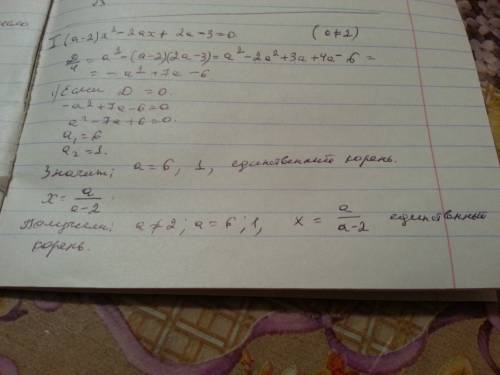 I (a-2)x²-2ax+2a-3=0. (a≠2)
D/4 = a²-(a-2)(2a-3)=a²-2a²+3a+4a-6=
= -a²+7a-6
1) Если D=0.
-a²+7a-6=0
a²-7a+6=0.
a₁=6
a₂=1.
Значит; a=6, 1, единственный корень.
x= a/(a-2).
Получили; a≠2; a=6; 1, x= a/(a-2) единственный
корень.